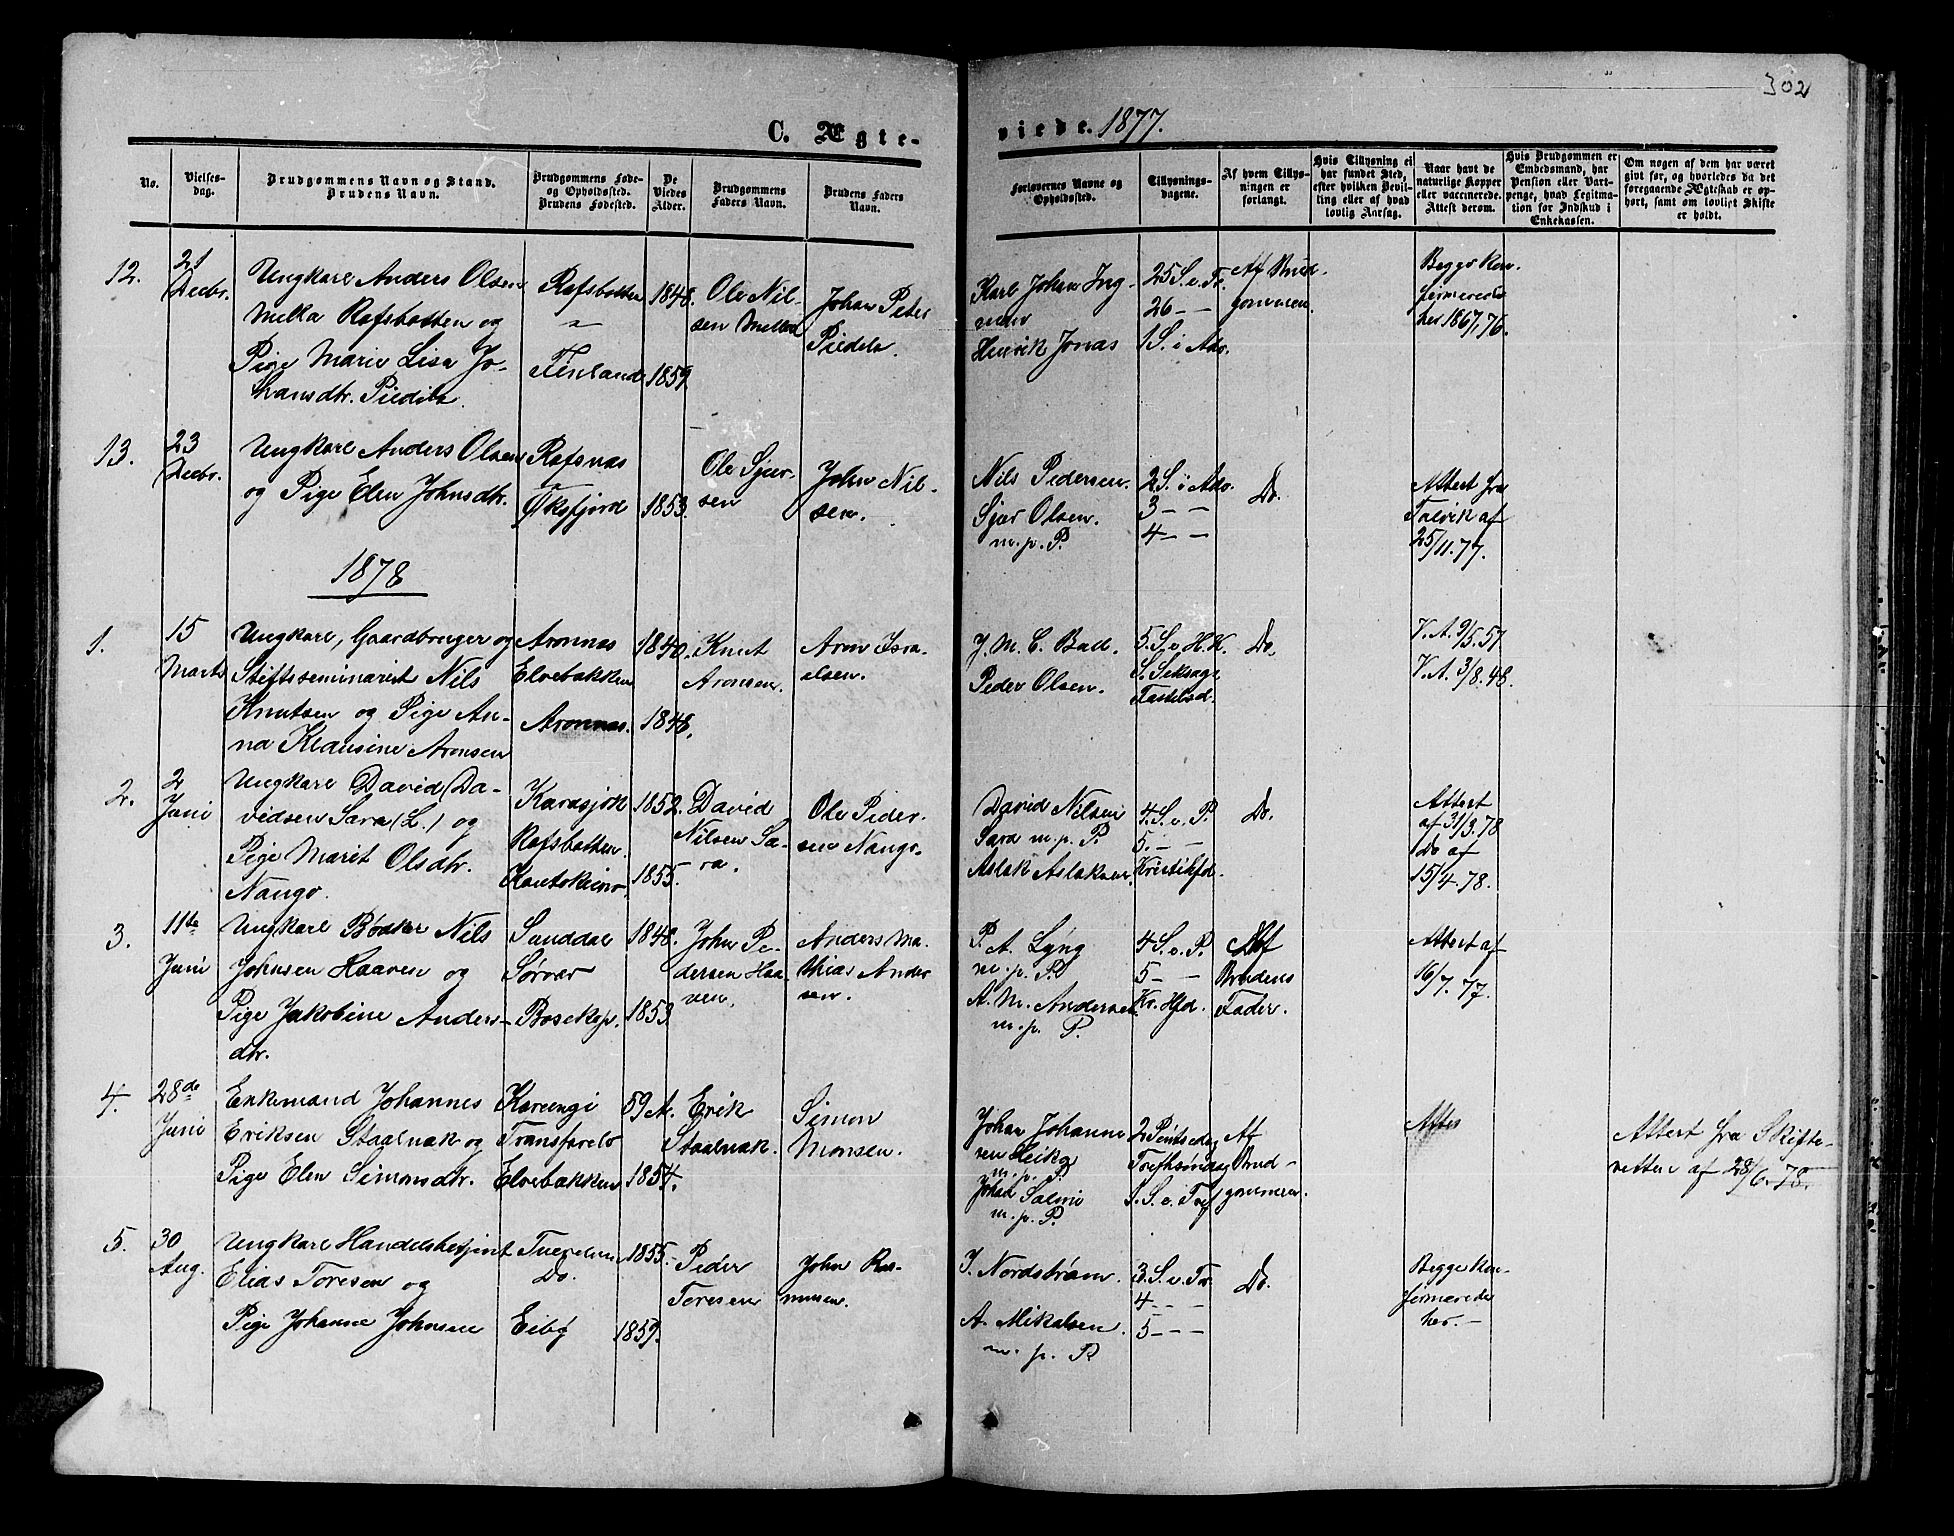 302
C. Ægte-
viede. 1877.
No.
Vielses-
dag.
Brudgommens Navn og Stand.
Brudens Navn.
Brudgommens Føde-
og Opholdssted.
Brudens Fødested.
De
Viedes
Alder.
Brudgommens
Faders Navn.
Brudens Faders
Navn.
Forlovernes Navne og
Opholdssted.
Tillysnings-
dagene.
Af hvem Tillys-
ningen er
forlangt.
Hvis Tillysning ei
har fundet Sted,
efter hvilken Bevil-
ling eller af hvad
lovlig Aarsag.
Naar havt de
naturlige Kopper
eller vaccinerede.
Attest derom.
Hvis Brudgommen er
Embedsmand, har
Pension eller Vart-
penge, hvad Legitima-
tion for Indskud i
Enkekassen.
Om nogen af dem har været
givt før, og hvorledes da det
foregaaende Ægteskab er op-
hørt, samt om lovligt Skifte
er holdt.
12.
21
Decbr.
Ungkarl Anders Olsen
Mella Rafsbotten og
Pige Marie Lisa Jo-
hansdtr. Piedila.
Rafsbotten
"
Finland
1848.
1859
Ole Nil-
sen Mella
Johan Peter
Piedila.
Karl Johan Ing-
Henrik Jonas
25 S. e. Tr.
26 - -
1 S. i Adv.
Af Brud-
gommen.
Begge Kon-
firmerede
her 1867, 76.
13.
23
Decbr.
Ungkarl Anders Olsen
og Pige Elen Johnsdtr.
Rafsnas
Øksfjord
1853.
Ole Sjur-
sen
John Nil-
sen.
Nils Pedersen.
Sjur Olsen.
m. p. P.
2 S. i Adv.
3 - -
4 - -
Do.
Attest fra
Talvik af
25/11. 77.
1878
1.
15
Marts
Ungkarl, Gaardbruger og
Stiftsseminarist Nils
Knutsen og Pige An-
na Klausine Aronsen
Aronnas
Elvebakken
Aronnas.
1840.
1848.
Knut
Aronsen.
Aron Isra-
elsen.
J. M. C. Bad.
Peder Olsen.
5. S. e. H. K.
S. Seksag.
Fastelsd.
Do.
V. A. 9/5. 57
V. A. 3/8. 48.
2.
2
Juni
Ungkarl David Da-
vidsen Sara (L.) og
Pige Marit Olsdtr.
Nango.
Karasjok
Rafsbotten.
Kautokeino
1852.
1855.
David
Nilsen Sa-
ra.
Ole Peder-
sen Nango.
David Nilsen
Sara m. p. P.
Aslak Aslaksen.
4. S. e. P
5. - -
Kristihfd.
Do.
Attest
af 31/3. 78
Do af
15/4. 78.
3.
11te
Juni
Ungkarl Bødker Nils
Johnsen Haaven og
Pige Jakobine Anders-
dtr.
Sunddal
Sørvær
Bosekop.
1848.
1853
John Pe-
dersen Haa-
ven.
Anders Ma-
thias Ander-
sen.
P. A. Lyng
m. p. P.
A. M. Andersen
m. p. P.
4 S. e. P.
5 - -
Kr. Hfd.
Af
Brudens
Fader.
Attest af
16/7. 77.
4.
28de
Juni
Enkemand Johannes
Eriksen Staalnak og
Pige Elen Simonsdtr.
Kareengi
Transfarelv
Elvebakken
59 A.
1854.
Erik
Staalnak.
Simon
Monsen.
Johan Johanne
sen Leika
m. p. P.
Johan Salmi
m. p. P.
2 Pintsedag
Trefhsøndag
1. S. e. Tref
Af
Brud-
gommen.
Attes
Attest fra Skifte-
retten af 28/6. 78.
5.
30
Aug.
Ungkarl Handelsbetjent
Elias Toresen og
Pige Johanne Johnsen
Do.
Eibø
1855.
1859.
Peder
Toresen
John Ras-
mussen.
J. Nordstrøm.
A. Mikalsen.
m. p. P
3. S. e. Tr.
4 - - -
5 - - -
Do.
Begge Kon-
firmerede
her. -